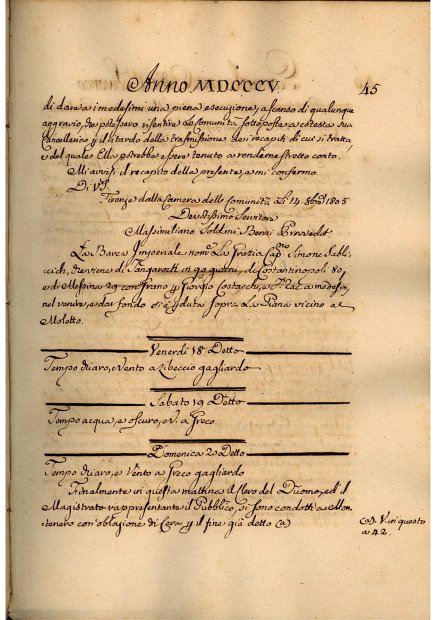 Anno MDCCCV
45
di dare a i medesimi una piena esecuzione, a scanso di qualunque
aggravio, che potessero risentire le Comunità sottoposte a cotesta sua
Cancelleria il ritardo della trasmissione de i recapiti di cui si tratta,
e del quale Ella potrebbe essere tenuto a renderne stretto conto.
Mi avvisi il recapito della presente, e mi confermo
Di VS.
Firenze dalla Camera delle Comunità Li 14. 1805
Devotissimo Servitore
Massimiliano Soldini Benzi
La Barca Imperiale nom. La Grazia Cap. Simone
che viene di in 90 giorni, di Costantinopoli 80
e di Messina 29 con Grano Giorgio
nel venire, e dar fondo si è perduta sopra La Piana vicino al
Moletto.
Venerdì 18 Detto
Tempo chiaro, e Vento a Libeccio gagliardo
Sabato 19 Detto
Tempo acqua, e oscuro, e V. a Greco
Domenica 20 Detto
Tempo chiaro, e Vento a Greco gagliardo
Finalmente in questa mattina il Clero del Duomo, ed il
Magistrato rappresentante il Pubblico, si sono condotti a Mon,
tenero con oblazione di Cera il fine già detto (a)
(a). V. in questo
a 42.